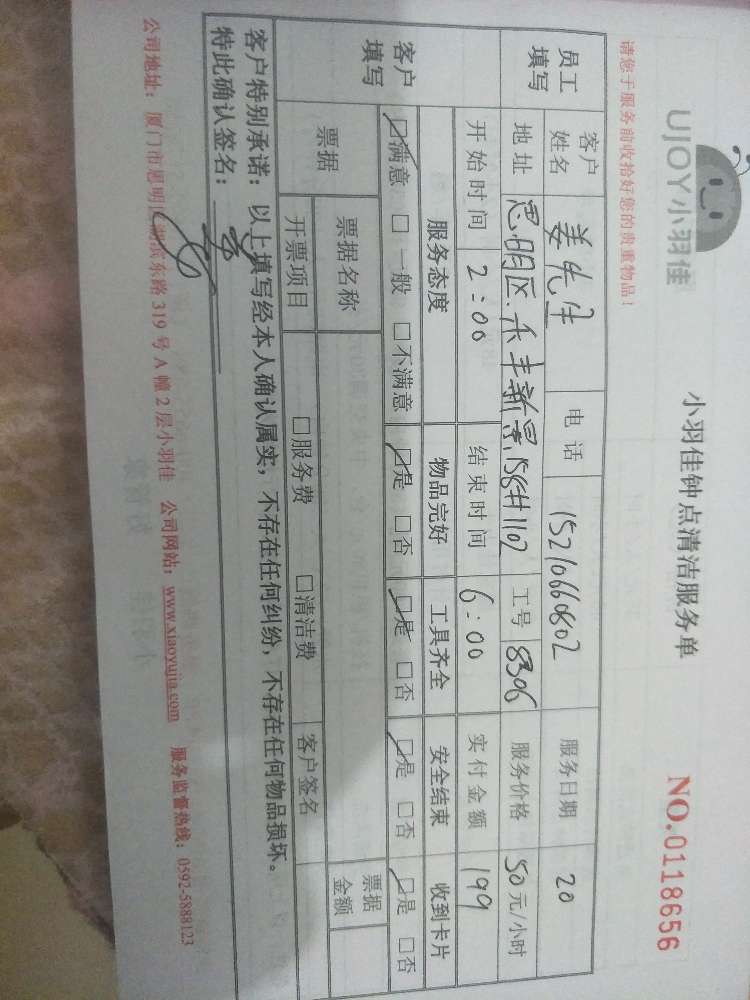 UJOY小羽佳
小羽佳钟点清洁服务单
NO.0118656
请您于服务前收拾好您的贵重物品！
员工填写 客户姓名 姜先生 电话 15210660802 服务日期 20
地址 思明区.禾丰新景.158#1102 工号 8306 服务价格 50元/小时
开始时间 2:00 结束时间 6:00 实付金额 199
客户填写 服务态度 物品完好 工具齐全 安全结束 收到卡片
☑满意 □一般 □不满意 ☑是 □否 ☑是 □否 ☑是 □否 ☑是 □否
票据 票据名称 票据金额
开票项目 □服务费 □清洁费 客户签名
客户特别承诺：以上填写经本人确认属实，不存在任何纠纷，不存在任何物品损坏。
特此确认签名：
公司地址：厦门市思明区湖滨东路319号A幢2层小羽佳 公司网站：www.xiaoyujia.com 服务监督热线：0592-5888123